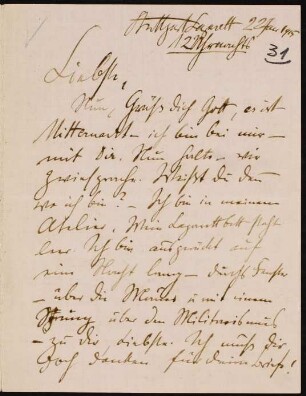 Stuttgart Lazarett 22 Jan 1915
12 Uhr nachts
31
Liebste,
Nun, Grüss dich Gott, es ist
Mitternacht – ich bin bei mir –
mit Dir. Nun halte – wir
Zwiesprache. Weisst du denn
wo ich bin? – Ich bin in meinem
Atelier. Mein Lazarettbett steht
leer. Ich bin ausgerückt auf
eine Nacht lang – durchs Fenster
– über die Mauer u mit einem
Sprung über den Militarismus
– zu dir Liebste. Ich muss dir
doch danken für deine Briefe!